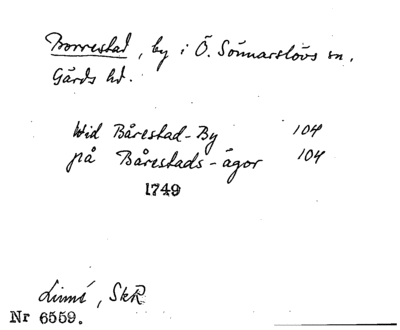 Borrestad, by i Ö. Sönnarslövs sn,
Gärds hd.
Wid Bårestad-By 104
på Bårestads-ägor 104
1749
Linné, SkR
Nr 6559.